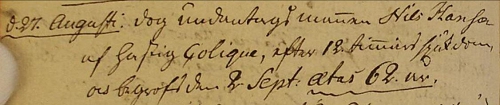 d. 27. Augusti: dog undantags mannen Nils Hansa
af hastig Colique, efter 12 timmars sjukdom
os begrofs den 2 Sept: ætas 62. år.